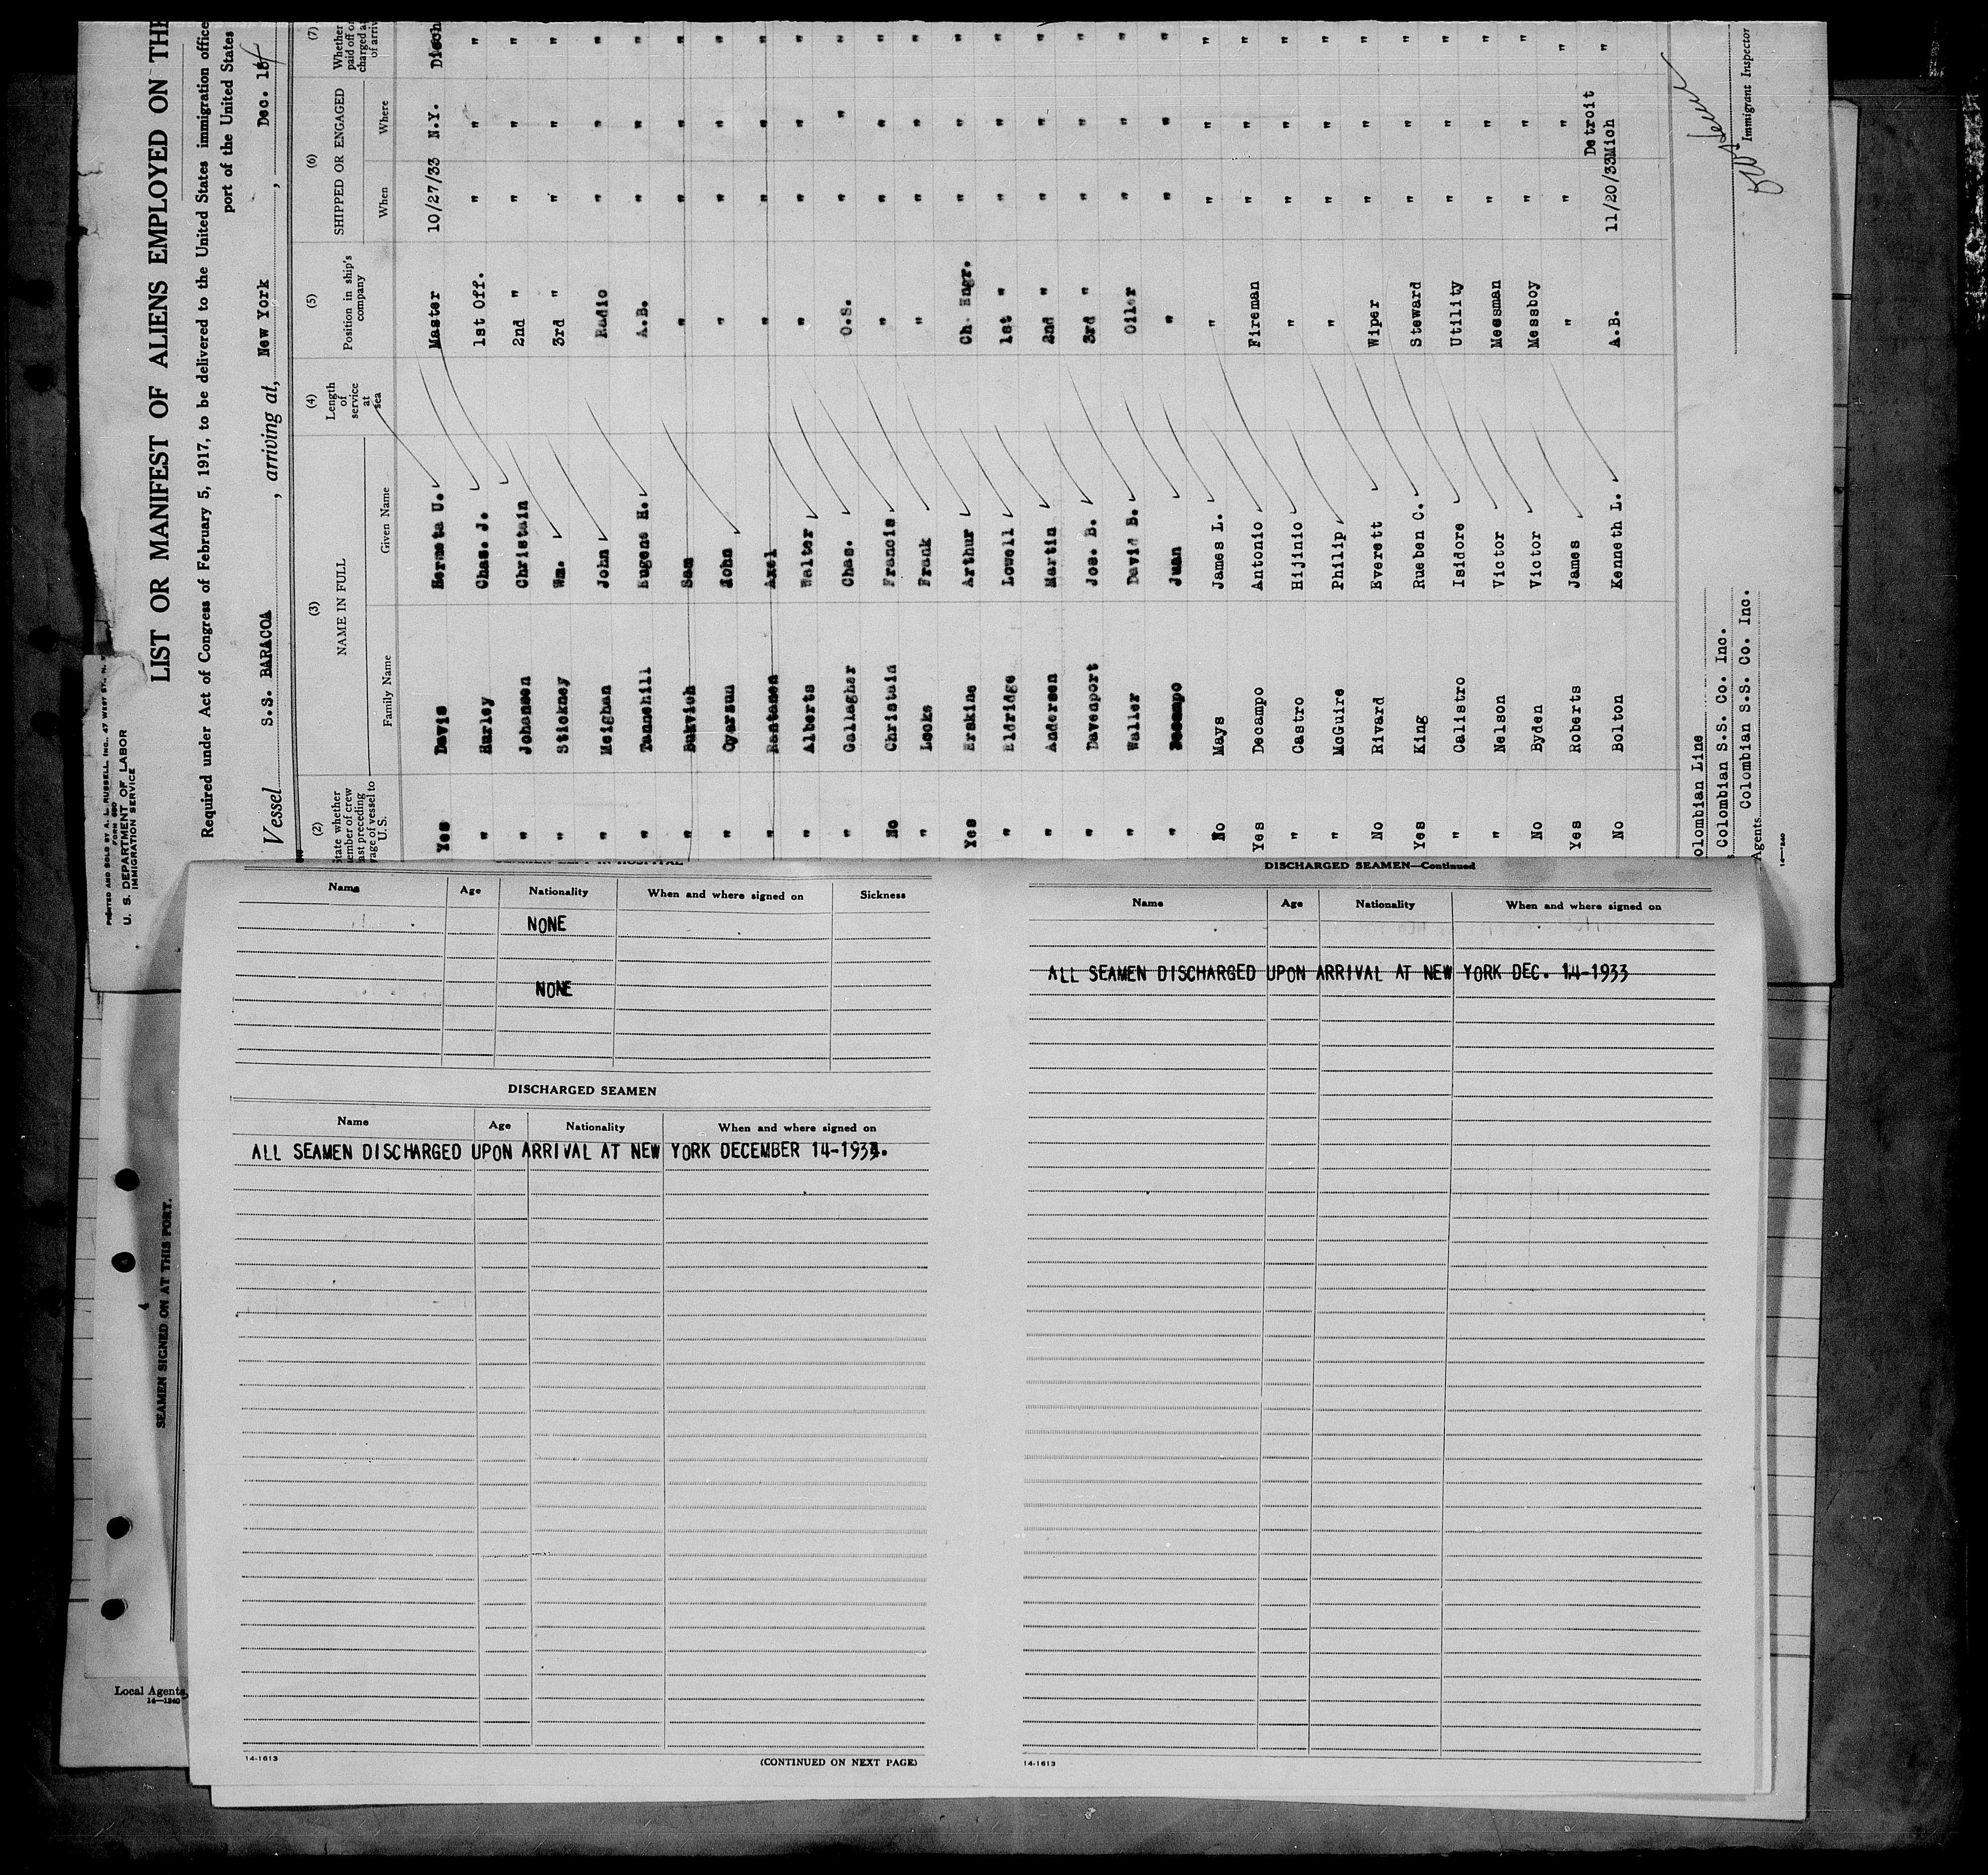 LIST OR MANIFEST OF ALIENS EMPLOYED ON THE
Required under Act of Congress of February 5, 1917, to be delivered to the United States immigration office
port of the United States
Vessel S.S. BARACOA, arriving at, New York, Dec. 14
PRINTED AND SOLD BY A. L. RUSSELL, INC., 47 WEST ST., N.
FORM 680
U. S. DEPARTMENT OF LABOR
IMMIGRATION SERVICE
(2) (3) (4) (5) (6) (7)
NAME IN FULL
Family Name Given Name
Length of service at sea
Position in ship's company
SHIPPED OR ENGAGED
When Where
Yes Davis Hermeta U. Master 10/27/33 N.Y. Disch
" Hurley Chas. J. 1st Off. " " "
" Johansen Christain 2nd " " " "
" Stickney Wm. 3rd " " " "
" Meighan John Radio " " "
" Tannehill Eugene H. A.B. " " "
" Bukvich Sam " " " "
" Oyarsun John " " " "
" Rantasen Axel " " " "
" Alberts Walter " " " "
" Gallagher Chas. O.S. " " "
No Christain Francis " " " "
" Locke Frank " " " "
Yes Erskine Arthur Ch. Engr. " " "
" Eldridge Lowell 1st " " " "
" Andersen Martin 2nd " " " "
" Davenport Jos. B. 3rd " " " "
" Waller David B. Oiler " " "
" Decampo Juan " " " "
No Mays James L. " " " "
Yes Decampo Antonio Fireman " " "
" Castro Hijinio " " " "
" McGuire Philip " " " "
No Rivard Everett Wiper " " "
Yes King Rueben C. Steward " " "
" Calistro Isidore Utility " " "
" Nelson Victor Messman " " "
No Byden Victor Messboy " " "
Yes Roberts James " " " "
No Bolton Kenneth L. A.B. 11/20/33 Detroit Mich "
olombian Line
Colombian S.S. Co. Inc.
Agents Colombian S.S. Co. Inc.
Immigrant Inspector
14-1240
SEAMEN SIGNED ON AT THIS PORT.
Local Agents,
14-1240
Name Age Nationality When and where signed on Sickness
NONE
NONE
DISCHARGED SEAMEN
Name Age Nationality When and where signed on
ALL SEAMEN DISCHARGED UPON ARRIVAL AT NEW YORK DECEMBER 14-1933.
14-1613
(CONTINUED ON NEXT PAGE)
DISCHARGED SEAMEN—Continued
Name Age Nationality When and where signed on
ALL SEAMEN DISCHARGED UPON ARRIVAL AT NEW YORK DEC. 14-1933
14-1613